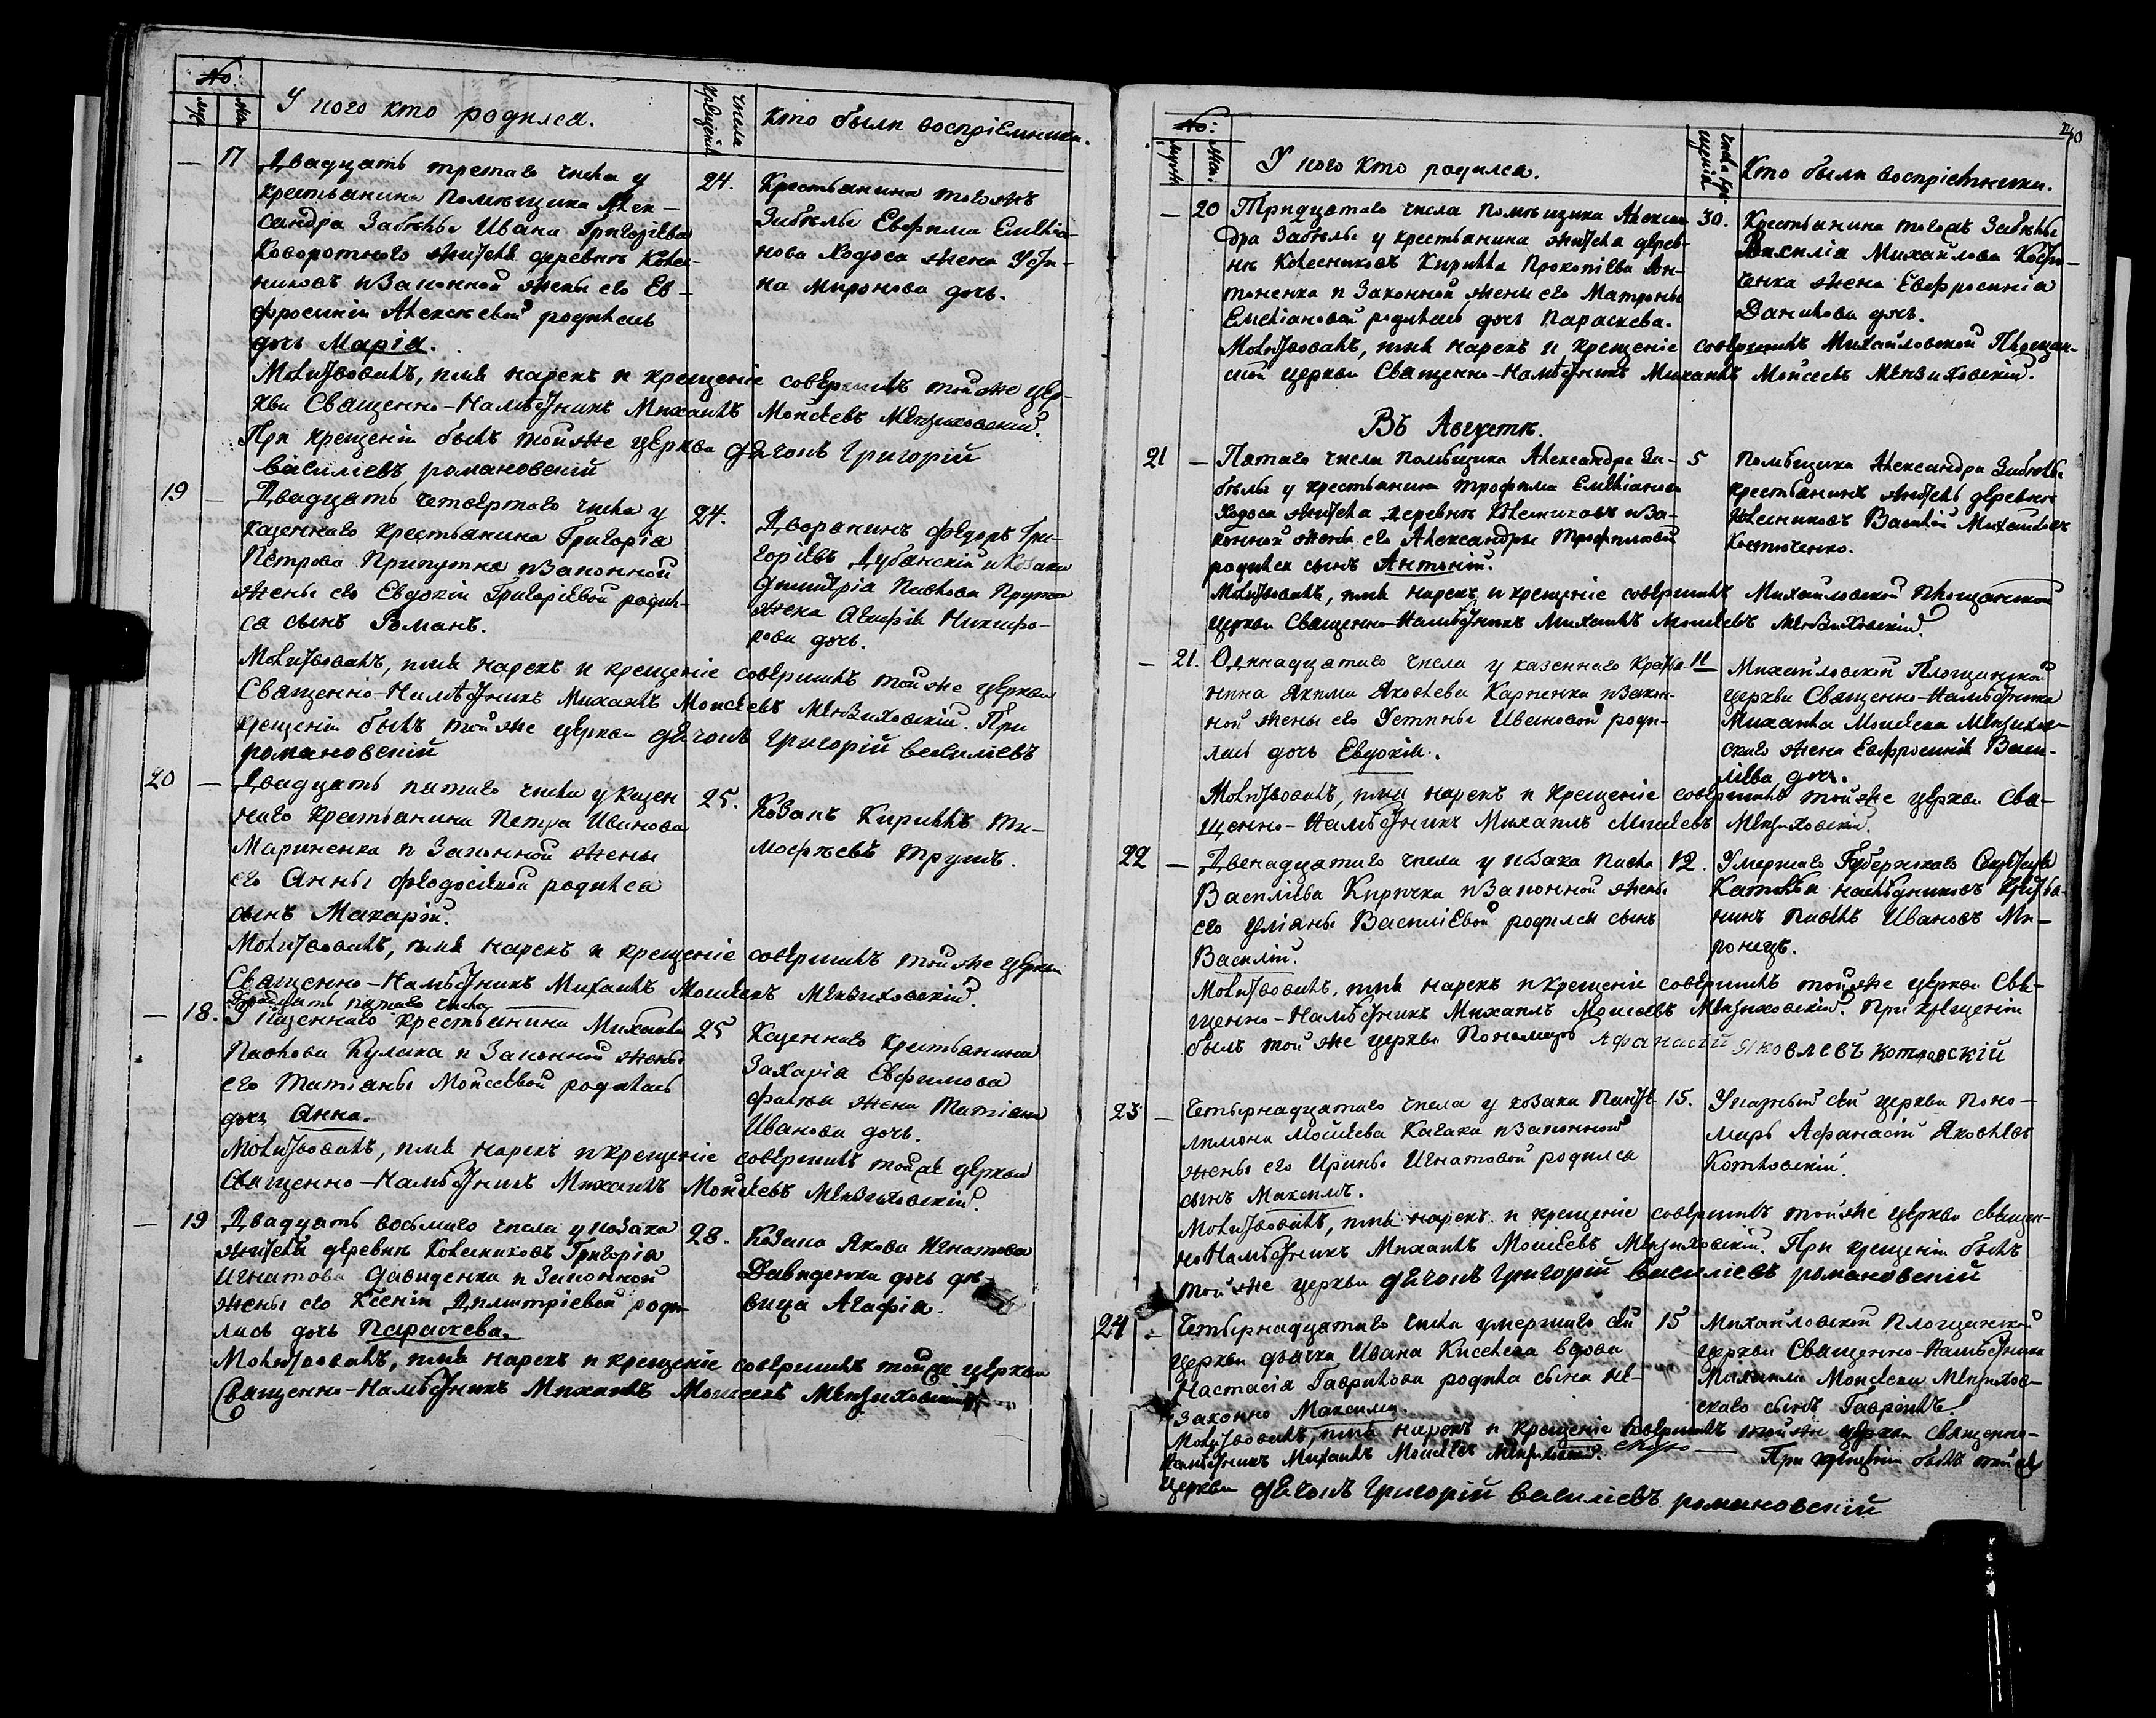 №:
муж.
жен.
У кого кто родился.
Числа крещенія
Кто были воспріемники.
— 17 Двадцать третаго числа у
крестьянина Помѣщика Алек-
сандра Забѣлы Ивана Григоріева
Коворотнаго жителя деревнѣ Колес-
никовъ и Законной жены его Ев-
фросиніи Алексѣевой родилась
дочь Марія.
24. Крестьянина того жъ
Забѣлы Евфима Емеліа-
нова Ходоса жена Усти-
на Миронова дочь.
Молитвовалъ, имя нарекъ и крещеніе совершилъ той же цер-
кви Священно-Намѣстникъ Михаилъ Моисеевъ Мензиховскій.
При крещеніи былъ той же церкви дяконъ Григорій
Василіевъ романовскій
19 — Двадцать четвертаго числа у
казеннаго крестьянина Григорія
Петрова Припутня и Законной
жены его Евдокіи Григоріевой родил-
ся сынъ Романъ.
24. Дворянинъ Федоръ Гри-
горіевъ Дубанскій и Козака
Дмитрія Павлова
жена Агафія Никифо-
рова дочь.
Молитвовалъ, имя нарекъ и крещеніе совершилъ той же церкви
Священно-Намѣстникъ Михаилъ Моисеевъ Мензиховскій. При
крещеніи былъ той же церкви дяконъ Григорій василіевъ
романовскій
20 — Двадцать пятаго числа у казен
наго крестьянина Петра Иванова
Мариненка и Законной жены
его Анны Феодосіевой родился
сынъ Макарій.
25. Козакъ Кириллъ Ти-
мофѣевъ Трушъ.
Молитвовалъ, имя нарекъ и крещеніе совершилъ той же церкви
Священно-Намѣстникъ Михаилъ Моисеевъ Мензиховскій.
Двадцать пятаго числа
— 18. У казеннаго крестьянина Михаила
Павлова Кулака и Законной жены
его Татіаны Моисеевой родилась
дочь Анна.
25 Казеннаго крестьянина
Захарія Евфимова
жена Татіана
Иванова дочь.
Молитвовалъ, имя нарекъ и крещеніе совершилъ той же церкви
Священно-Намѣстникъ Михаилъ Моисеевъ Мензиховскій.
— 19 Двадцать восьмаго числа у козака
жителя деревнѣ Колесниковъ Григорія
Игнатова Давиденка и Законной
жены его Ксеніи Дмитріевой роди-
лась дочь Параскева.
28. Козака Якова Игнатова
Давиденка дочь дѣ-
вица Агафія.
Молитвовалъ, имя нарекъ и крещеніе совершилъ той же церкви
Священно-Намѣстникъ Михаилъ Моисеевъ Мензиховскій
№:
мужеск.
жен.
У кого кто родился.
Числа кре-
щенія
Кто были воспріемники.
— 20 Тридцатаго числа Помѣщика Алексан
дра Забѣлы у крестьянина жителя дерев-
нѣ Колесниковъ Кирилла Прокопіева Ан-
тоненка и Законной жены его Матроны
Емеліановой родилась дочь Параскева.
30. Крестьянина того жъ Забѣлы
Василія Михайлова Костю-
ченка жена Евфросинія
Данилова дочь.
Молитвовалъ, имя нарекъ и крещеніе совершилъ Михайловской Площан-
ской церкви Священно-Намѣстникъ Михаилъ Моисеевъ Мензиховскій.
Въ Августѣ.
21 — Пятаго числа помѣщика Александра За-
бѣлы у крестьянина Трофима Емеліанова
Ходоса жителя деревнѣ Колесниковъ и За-
конной жены его Александры Трофимовой
родился сынъ Антоній.
5 Помѣщика Александра Забѣлы
крестьянинъ житель деревнѣ
Колесниковъ Василій Михайловъ
Костюченко.
Молитвовалъ, имя нарекъ и крещеніе совершилъ Михайловской Площанской
церкви Священно-Намѣстникъ Михаилъ Моисеевъ Мензиховскій.
— 21. Одинадцатаго числа у казеннаго крестья
нина Якима Яковлева Карпенка и Закон-
ной жены его Устины Ивановой роди-
лась дочь Евдокія.
11 Михайловской Площанской
церкви Священно-Намѣстника
Михаила Моисеева Мензихов-
скаго жена Евфросинія Васи-
ліева дочь.
Молитвовалъ, имя нарекъ и крещеніе совершилъ той же церкви Свя-
щенно-Намѣстникъ Михаилъ Моисеевъ Мензиховскій.
22 — Двенадцатаго числа у козака Павла
Василіева Кирпачка и Законной жены
его Уліяны Василіевой родился сынъ
Василій.
12. Умершаго Губернскаго Секретаря
наслѣдниковъ крестья-
нинъ Павелъ Ивановъ Ми-
ронецъ.
Молитвовалъ, имя нарекъ и крещеніе совершилъ той же церкви Свя-
щенно-Намѣстникъ Михаилъ Моисеевъ Мензиховскій. При крещеніи
былъ той же церкви Пономарь Афанасій яковлевъ котляевскій
23 — Четырнадцатаго числа у козака Панте-
лимона Моисеева Качака и Законной
жены его Ирины Игнатовой родился
сынъ Максимъ.
15. Указный сей церкви Поно-
марь Афанасій Яковлевъ
Котловскій.
Молитвовалъ, имя нарекъ и крещеніе совершилъ той же церкви священ-
но Намѣстникъ Михаилъ Моисеевъ Мензиховскій. При крещеніи былъ
той же церкви дяконъ Григорій василіевъ романовскій
24 — Четырнадцатаго числа умершаго сей
церкви дьячка Ивана Киселева вдова
Настасія Гаврилова родила сына не-
законно Максима.
15 Михайловской Площанской
церкви Священно-Намѣстника
Михаила Моисеева Мензихов-
скаго сынъ Гавріилъ.
Молитвовалъ, имя нарекъ и крещеніе совершилъ той же церкви Священно-
Намѣстникъ Михаилъ Моисеевъ Мензиховскій. При крещеніи былъ той же
церкви дяконъ Григорій василіевъ романовскій